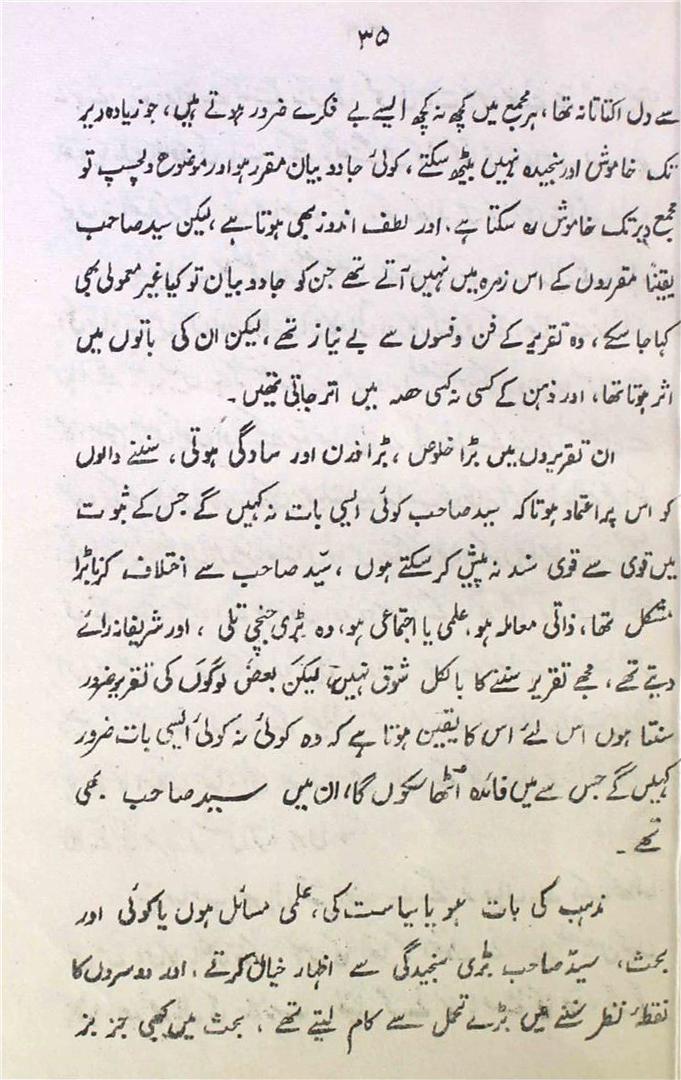 ۳۵
سے دل اکتاتا نہ تھا، ہر مجمع میں کچھ نہ کچھ ایسے بے فکرے ضرور ہوتے ہیں، جو زیادہ دیر
تک خاموش اور سنجیدہ نہیں بیٹھ سکتے، کوئی جادو بیان مقرر ہو اور موضوع دلچسپ تو
مجمع دیر تک خاموش رہ سکتا ہے۔ اور لطف اندوز بھی ہوتا ہے، لیکن سید صاحب
یقیناً مقرروں کے اس زمرہ میں نہیں آتے تھے جن کو جادو بیان تو کیا غیر معمولی بھی
کہا جا سکے، وہ تقریر کے فن و فسوں سے بے نیاز تھے، لیکن ان کی باتوں میں
اثر ہوتا تھا، اور ذہن کے کسی نہ کسی حصہ میں اتر جاتی تھیں۔
ان تقریروں میں بڑا خلوص، بڑا وزن اور سادگی ہوتی، سننے والوں
کو اس پر اعتماد ہوتا کہ سید صاحب کوئی ایسی بات نہ کہیں گے جس کے ثبوت
میں قوی سے قوی سند نہ پیش کر سکتے ہوں، سیّد صاحب سے اختلاف کرنا بڑا
مشکل تھا، ذاتی معاملہ ہو، علمی یا اجتماعی ہو، وہ بڑی جنچی تلی، اور شریفانہ رائے
دیتے تھے، مجھے تقریر سننے کا بالکل شوق نہیں، لیکن بعض لوگوں کی تقریر ضرور
سنتا ہوں اس لئے اس کا یقین ہوتا ہے کہ وہ کوئی نہ کوئی ایسی بات ضرور
کہیں گے جس سے میں فائدہ اٹھا سکوں گا، ان میں سید صاحب بھی
تھے۔
مذہب کی بات ہو یا سیاست کی، علمی مسائل ہوں یا کوئی اور
بحث، سیّد صاحب بڑی سنجیدگی سے اظہار خیال کرتے، اور دوسروں کا
نقطۂ نظر سننے میں بڑے تحمل سے کام لیتے تھے، بحث میں کبھی جز بز